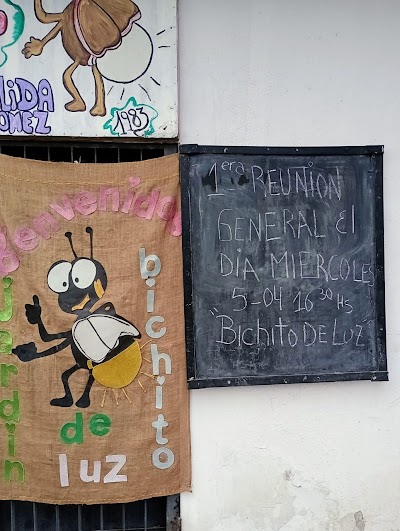 LIDA
OMEZ
1983
Bienvenidos
jardin
de
luz
bichito
1era REUNION
GENERAL El
DIA MIERCOLES
5-04 16 30 HS
"BICHITO DE LUZ"